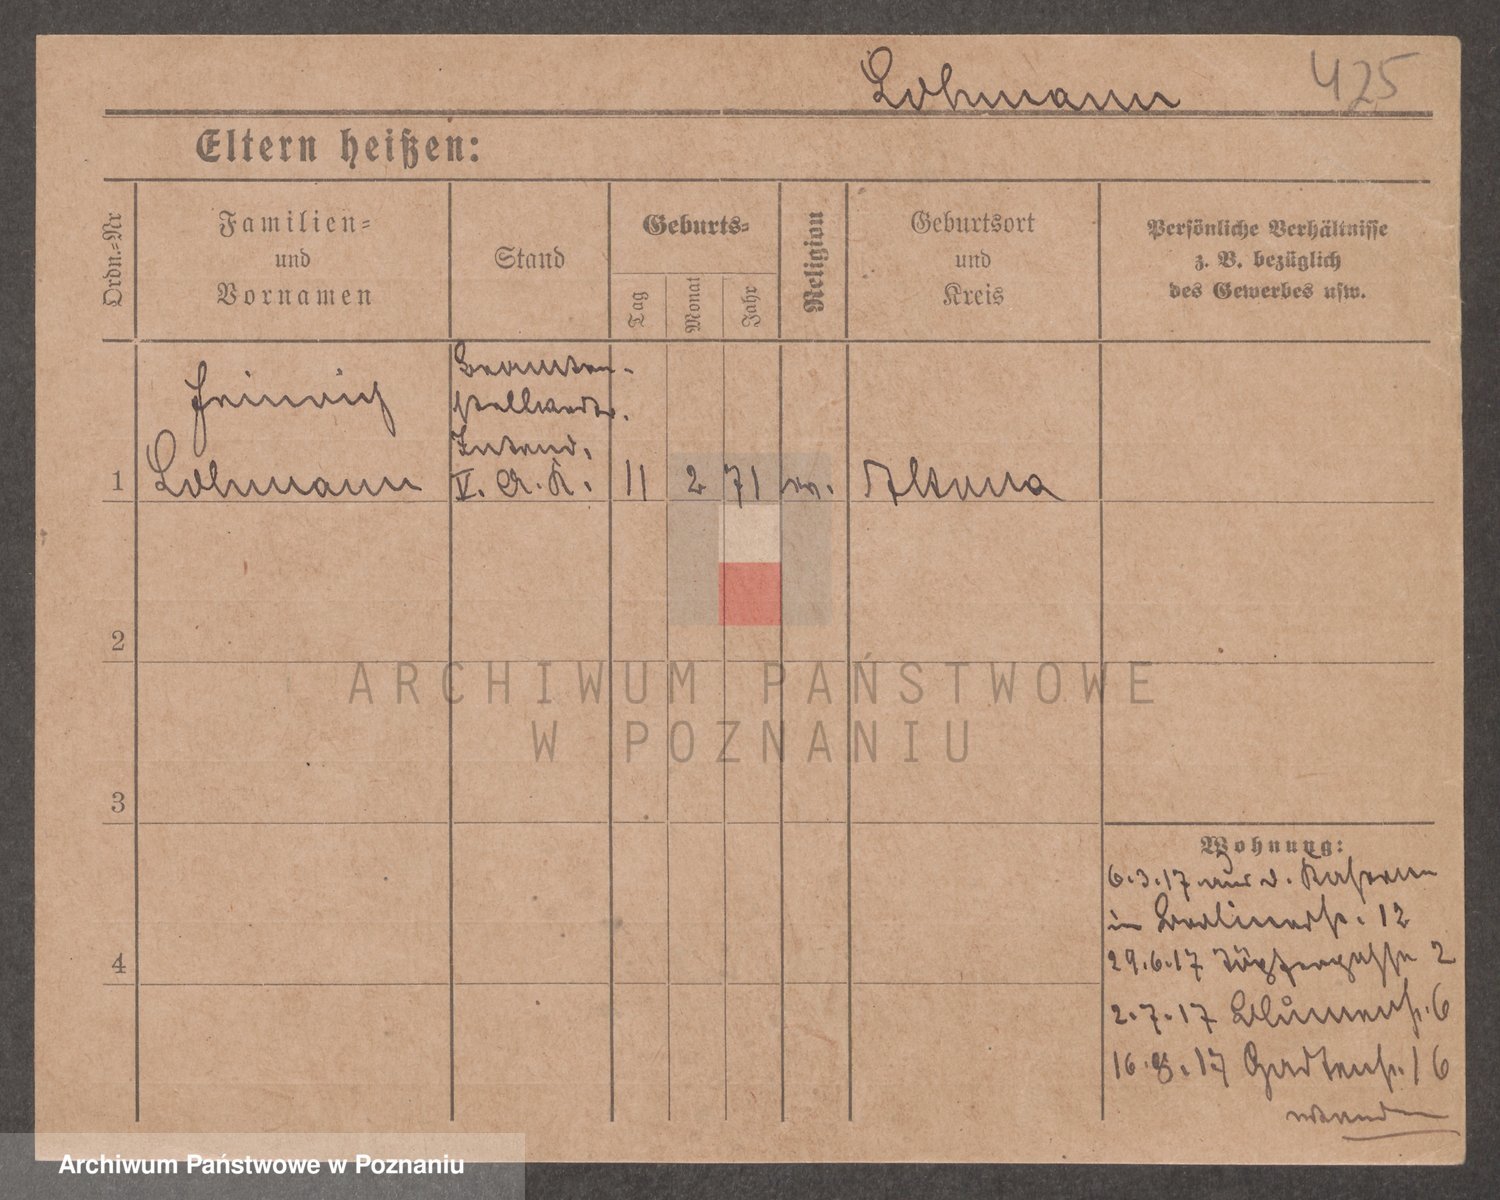 Lohmann
425
Eltern heißen:
Ordn.=Nr
Familien=
und
Vornamen
Stand
Geburts=
Tag
Monat
Jahr
Religion
Geburtsort
und
Kreis
Persönliche Verhältnisse
z. B. bezüglich
des Gewerbes usw.
Heinrich
Lohmann
Beamten-
stellvertr.
Intend.
V. A. K.
1
11
2
71
ev.
Altona
2
3
4
Wohnung:
6.3.17 aus d. Kaserne
in Berlinerstr. 12
29.6.17 Töpfergasse 2
2.7.17 Blumenstr. 6
16.8.17 Gartenstr. 16
wenden
ARCHIWUM PAŃSTWOWE
W POZNANIU
Archiwum Państwowe w Poznaniu